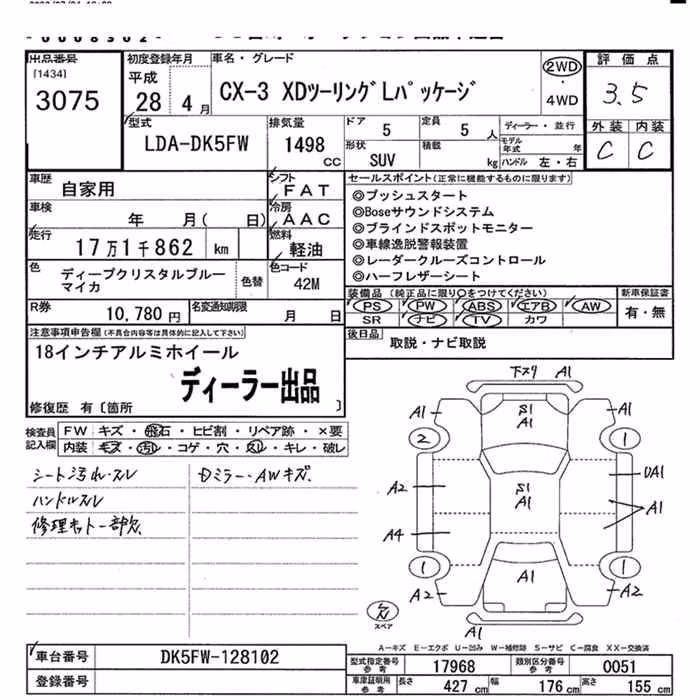 出品番号
[1434]
3075
初度登録年月
平成
28 年 4 月
車名・グレード
CX-3 XDツーリングLパッケージ
2WD
・
4WD
評価点
3.5
外装 内装
C C
型式
LDA-DK5FW
排気量
1498
cc
ドア 5
定員 5 人
形状 SUV
積載 kg
ディーラー・並行
モデル年式 年
ハンドル 左・右
車歴
自家用
車検
年 月( 日)
走行
17万1千862 km
色
ディープクリスタルブルーマイカ
色替
シフト
FAT
冷房
AAC
燃料
軽油
色コード
42M
R券
10,780円
名変通知期限
月 日
セールスポイント(正常に機能するものに限ります)
◎プッシュスタート
◎Boseサウンドシステム
◎ブラインドスポットモニター
◎車線逸脱警報装置
◎レーダークルーズコントロール
◎ハーフレザーシート
装備品(純正品に限り○をつけてください)
PS PW ABS エアB AW
SR ナビ TV カワ
新車保証書
有・無
後日品
取説・ナビ取説
注意事項申告欄(不具合内容等は具体的に記入して下さい)
18インチアルミホイール
ディーラー出品
修復歴 有〔箇所 〕
検査員記入欄
FW キズ・飛石・ヒビ割・リペア跡・×要
内装 キズ・汚レ・コゲ・穴・スレ・キレ・破レ
シート汚れ・スレ
ハンドルスレ
修理キット一部欠
Dミラー・AWキズ.
下スリ A1
A1
S1
A1
A1
2
1
A2
S1
A1
UA1
A1
A4
1
1
A2
A1
A2
A1
スペア
A-キズ E-エクボ U-凹み W-補修跡 S-サビ C-腐食 XX-交換済
車台番号
DK5FW-128102
登録番号
型式指定番号
参考
17968
類別区分番号
参考
0051
車庫証明用
参考
長さ 427 cm
幅 176 cm
高さ 155 cm